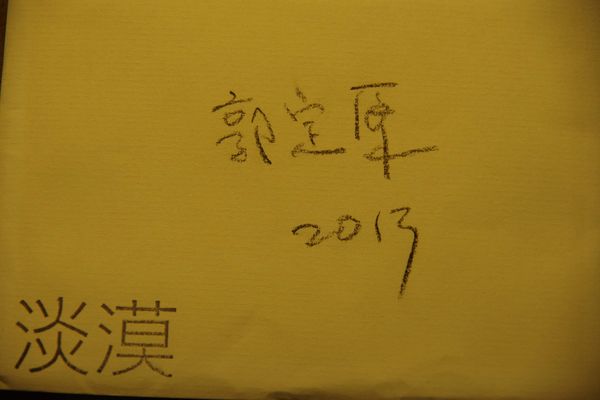 郭定原
2013
淡漠